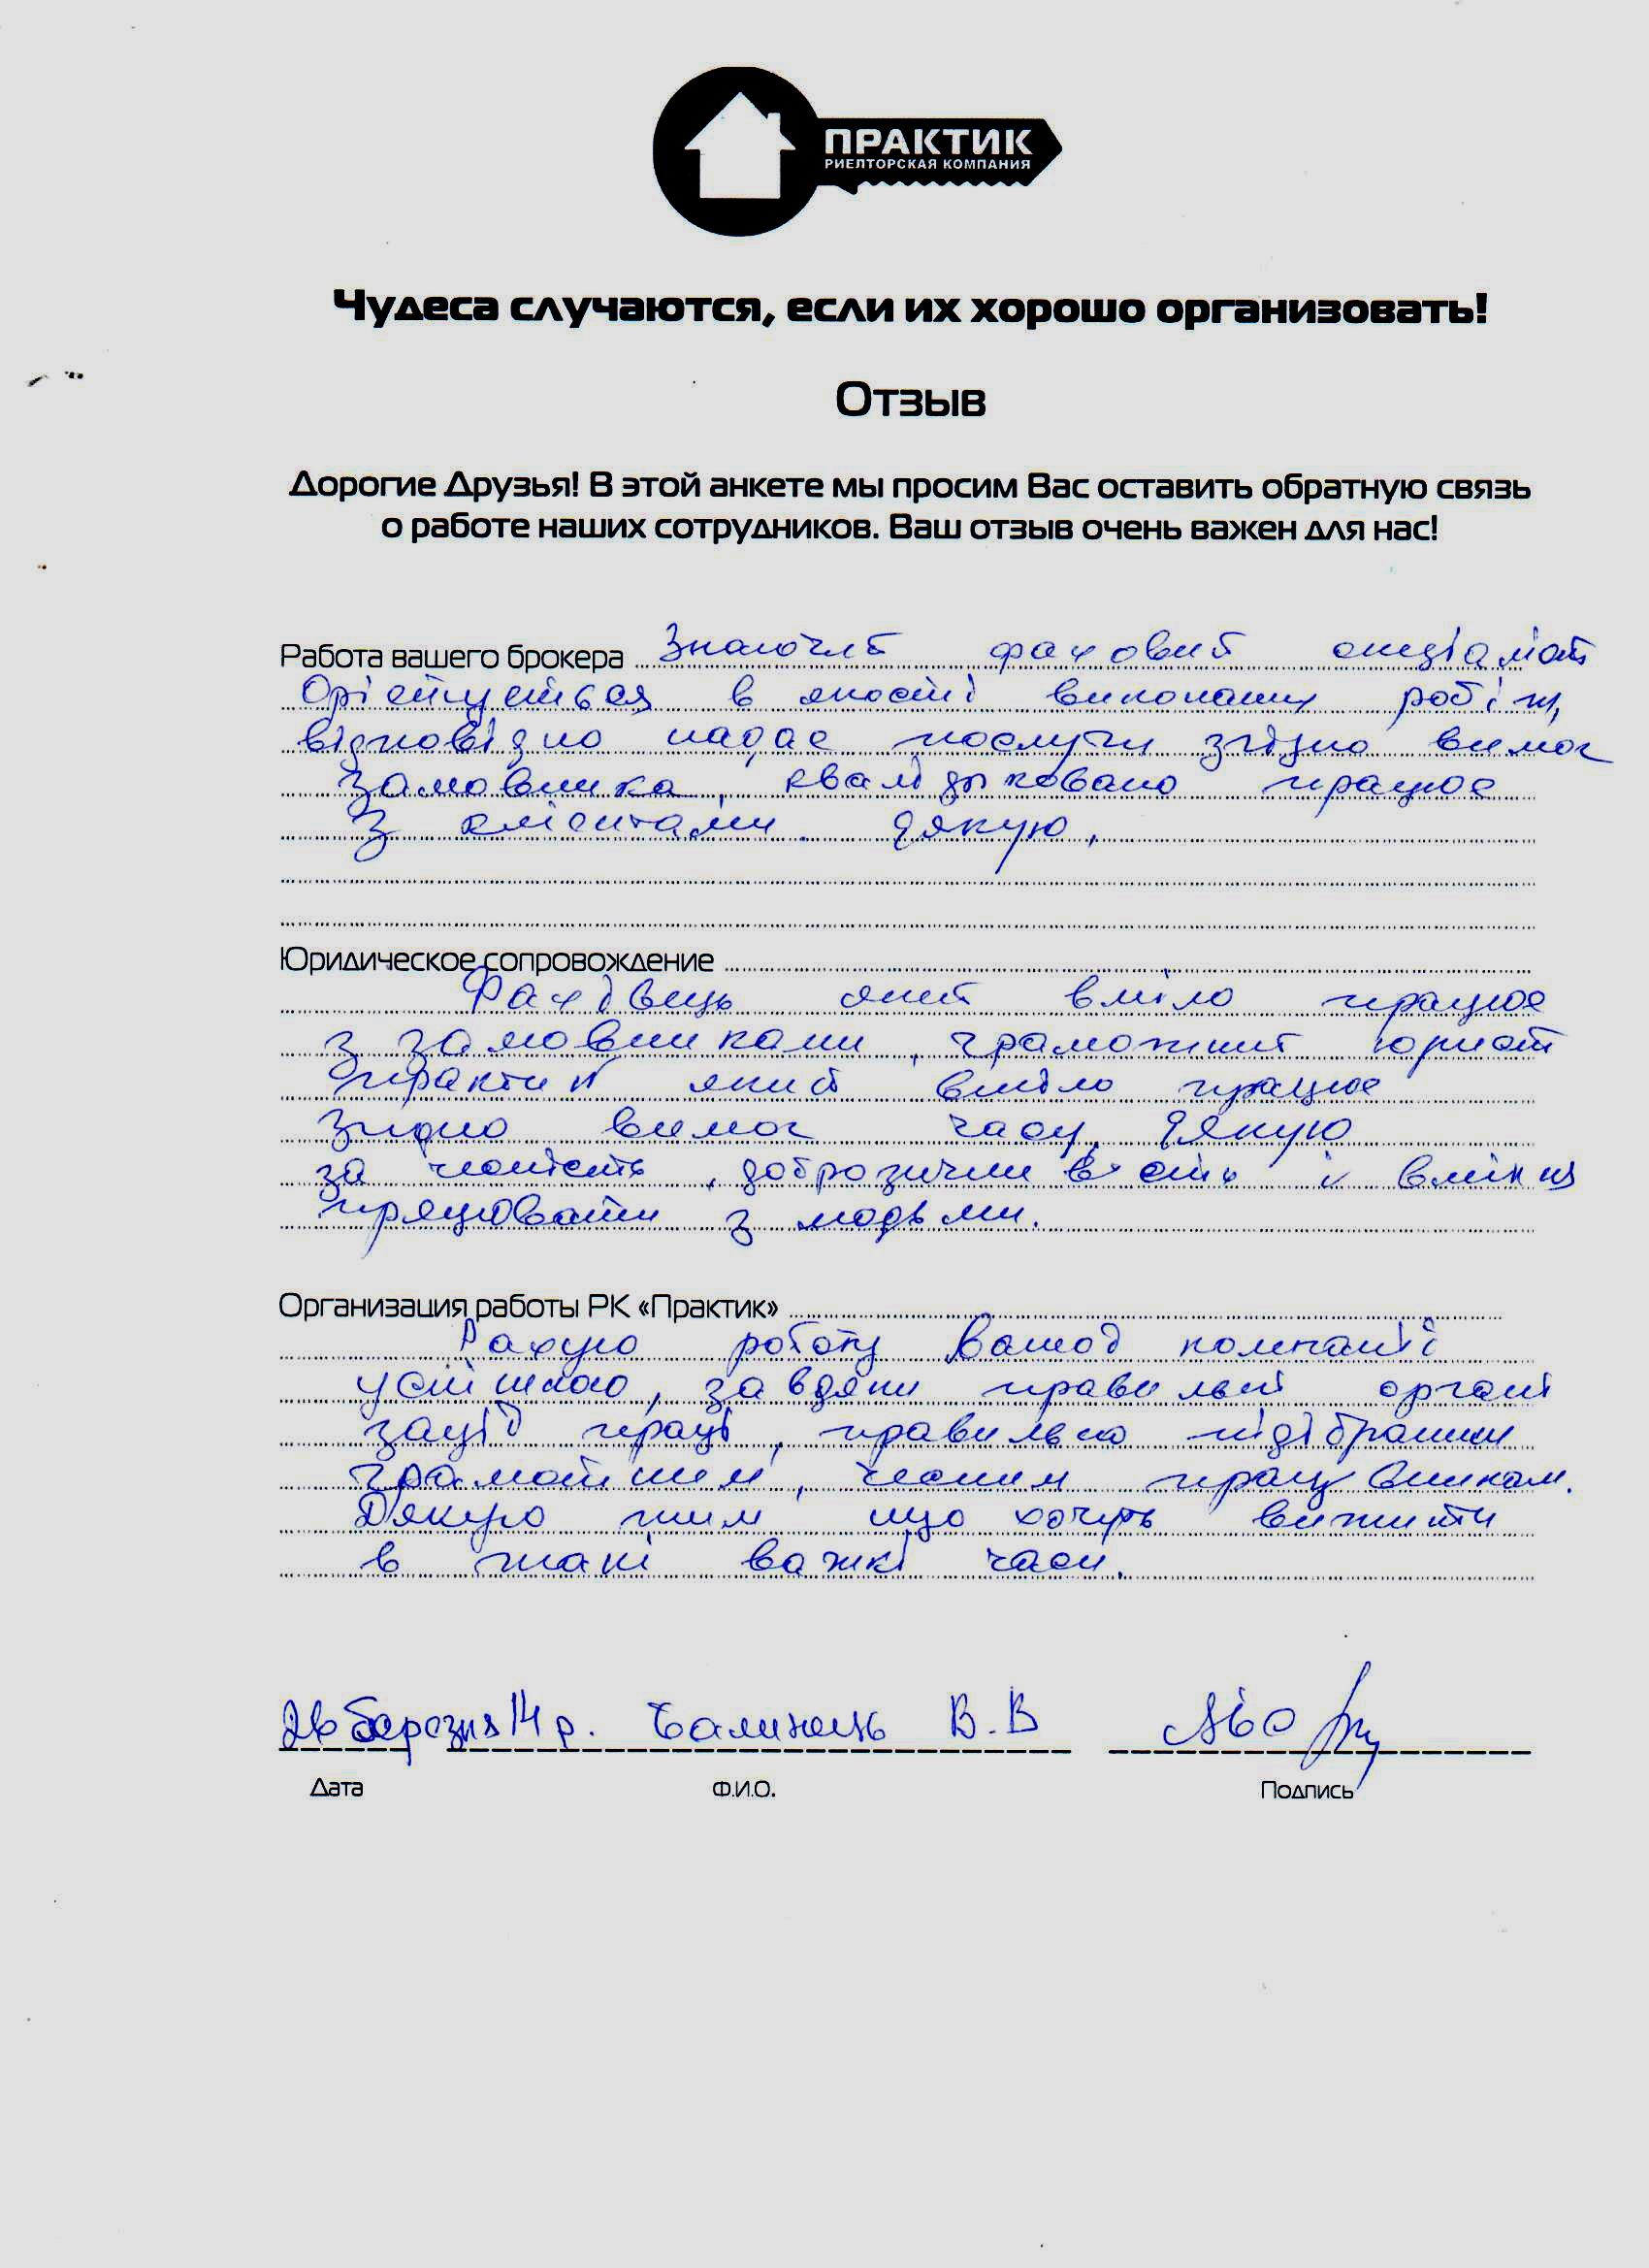 ПРАКТИК
РИЕЛТОРСКАЯ КОМПАНИЯ
Чудеса случаются, если их хорошо организовать!
Отзыв
Дорогие Друзья! В этой анкете мы просим Вас оставить обратную связь
о работе наших сотрудников. Ваш отзыв очень важен для нас!
Работа вашего брокера фаховий спеціаліст
Орієнтується в якості виконаних робіт,
відповідно надає послуги згідно вимог
замовника, кваліфіковано працює
з клієнтами. Дякую,
Юридическое сопровождение
Фахівець який вміло працює
з замовниками, грамотний юрист
практик який вміло працює
згидно вимог часу, Дякую
за чистість, доброзичливість і вміння
працювати з людьми.
Организация работы РК «Практик»
Рахую роботу Вашої компанії
успішною, завдяки правильній органі
зації праці, правильно підібраним
грамотним, чесним працівникам.
Дякую тим що хочуть вижити
в такі важкі часи.
26 березня 14 р. В.В
Дата Ф.И.О. Подпись